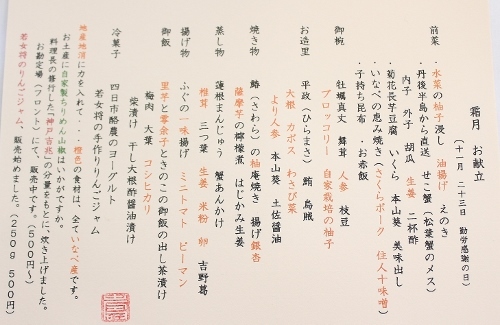 霜月　お献立
（十一月　二十三日　勤労感謝の日）
前菜　・水菜の柚子浸し　油揚げ　えのき
丹後半島から直送　せこ蟹（松葉蟹のメス）
内子　外子　胡瓜　生姜　二杯酢
・菊花長芋豆腐　いくら　本山葵　美味出し
・いなべの恵み焼き（さくらポーク　住人十味噌）
・子持ち昆布　・お赤飯
御椀　牡蠣真丈　舞茸　人参　枝豆
ブロッコリー　自家栽培の柚子
お造里　平政（ひらまさ）　鮪　烏賊
大根　カボス　わさび菜
より人参　本山葵　土佐醤油
焼き物　鰆（さわら）の柚庵焼き　揚げ銀杏
薩摩芋の檸檬煮　はじかみ生姜
蒸し物　蓮根まんじゅう　蟹あんかけ
椎茸　三つ葉　生姜　米粉　卵　吉野葛
揚げ物　ふぐの一味揚げ　ミニトマト　ピーマン
御飯　里芋と零余子ときのこの御飯の出し茶漬け
梅肉　大葉　コシヒカリ
柴漬け　干し大根酢醤油漬け
冷菓子　四日市酪農のヨーグルト
若女将の手作りりんごジャム
地産地消に力を入れて・・・橙色の食材は、全ていなべ産です。
お土産に自家製ちりめん山椒はいかがですか。
料理長の修行した「神戸吉兆」の分量をもとに、炊き上げました。
お勘定場（フロント）にて、販売中です。（５００円～）
若女将のりんごジャム、販売始めました。（２５０ｇ　５００円）